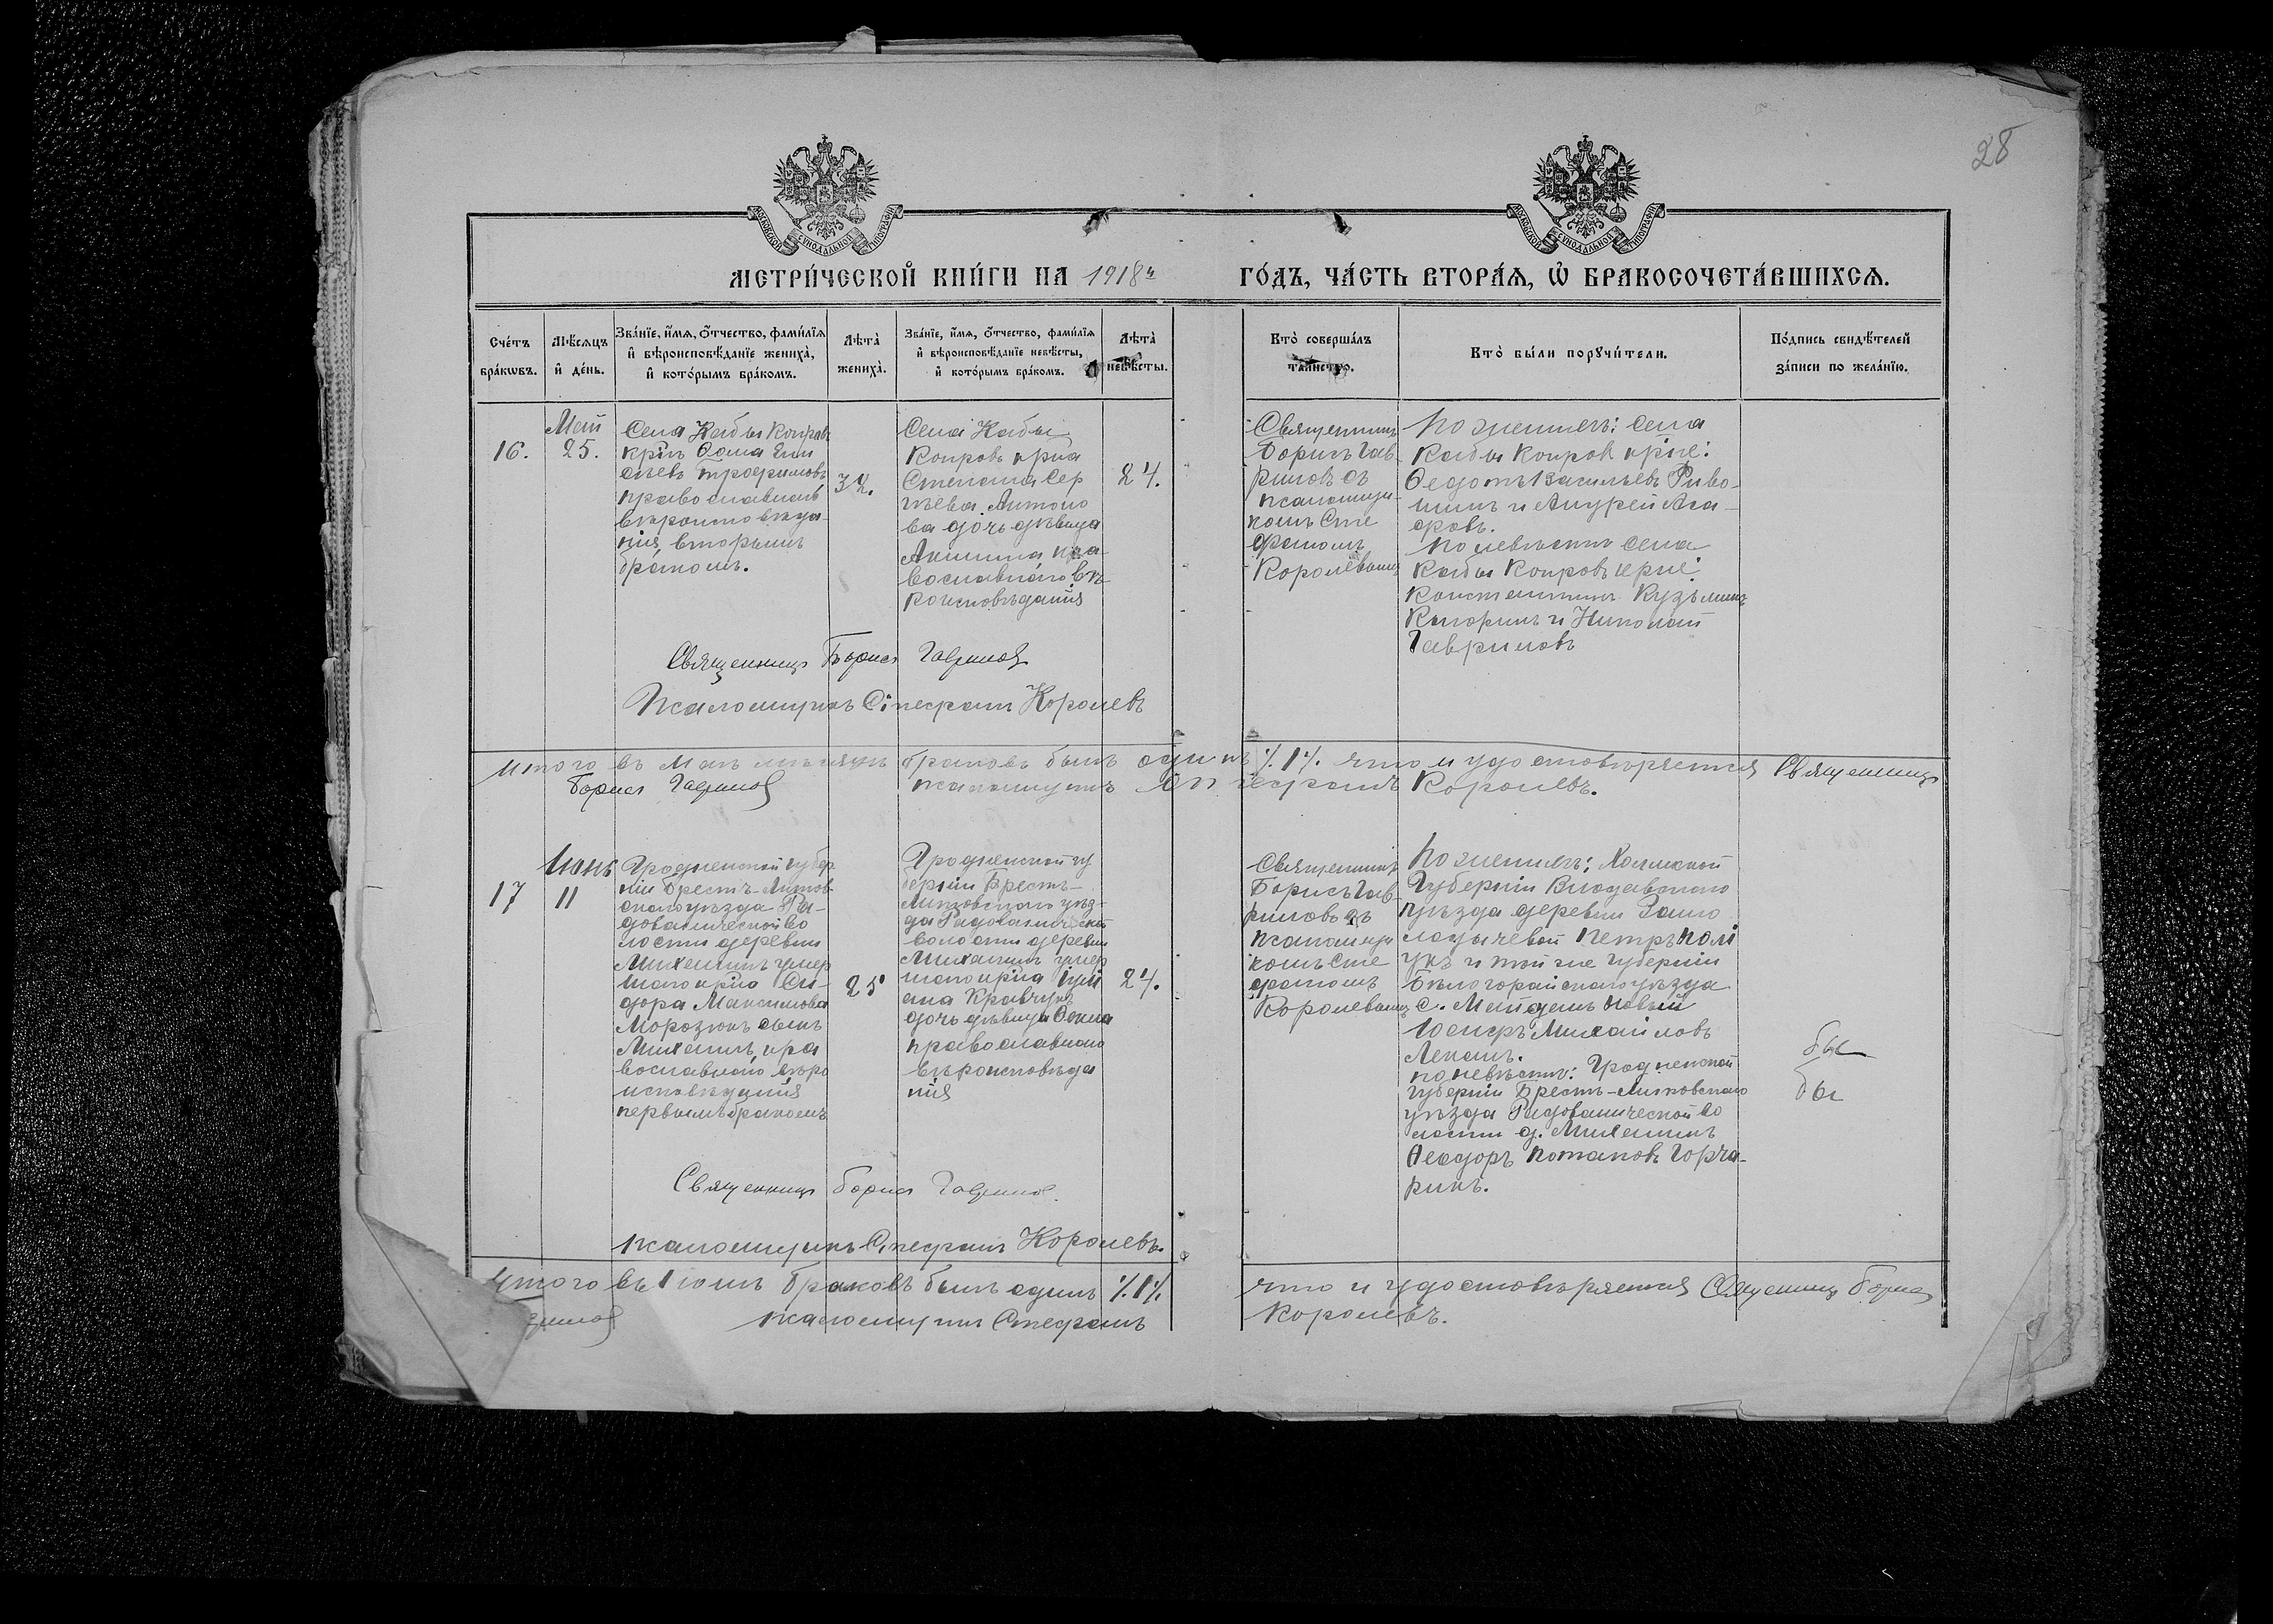 28
МОСКОВСКОЙ СѴНОДАЛЬНОЙ ТИПОГРАФІИ
МОСКОВСКОЙ СѴНОДАЛЬНОЙ ТИПОГРАФІИ
МЕТРИ́ЧЕСКОЙ КНИ́ГИ НА 1918 г
ГО́ДЪ, ЧА́СТЬ ВТОРА́Ѧ, Ѡ҆ БРАКОСОЧЕТА́ВШИХСѦ.
Сче́тъ
бра́кѡвъ.
Мѣ́сѧцъ
и҆ де́нь.
Зва́нїе, и҆́мѧ, ѻ҆́тчество, фами́лїѧ
и҆ вѣроисповѣ́данїе жениха̀,
и҆ кото́рымъ бра́комъ.
Лѣ́та
жениха̀.
Зва́нїе, и҆́мѧ, ѻ҆́тчество, фами́лїѧ
и҆ вѣроисповѣ́данїе невѣ́сты,
и҆ кото́рымъ бра́комъ.
Лѣ́та
невѣ́сты.
Кто̀ соверша́лъ
та́инство.
Кто̀ бы́ли порꙋчи́тели.
По́дпись свидѣ́телей
за́писи по жела́нїю.
16.
Май
25.
Села Кабы Копров
крнъ Ѳома Ели
сѣевъ Трофимовъ
православнаго
вѣроисповѣда-
нія, вторымъ
бракомъ.
32.
Села Кабы
Копровъ крна
Степана Сер
гѣева Антоно
ва дочь дѣвица
Акилина пра-
вославнаго вѣ-
роисповѣданія
24.
Священникъ
Борисъ Гав-
риловъ съ
псаломщи-
комъ Сте
фаномъ
Королевымъ
По женихѣ: села
Кабы Копров крне:
Ѳедотъ Васильевъ
и Андрей Ага-
фовъ.
По невѣстѣ села
Кабы Копровъ крне:
Константинъ Кузьминъ
и Николай
Гавриловъ
Священникъ Борисъ Гавриловъ
Псаломщикъ Стефанъ Королевъ
Итого въ Маѣ мѣсяцѣ браковъ былъ одинъ ٪1٪. что и удостовѣряется Священникъ
Борисъ Гавриловъ псаломщикъ Стефанъ Королевъ.
17
Іюнь
11
Гродненской губер
ніи Брестъ-Литов-
скаго уѣзда Ра-
доваической во
лости деревни
умер
шаго крна Си-
дора Максимова
Морозюкъ сынъ
Михаилъ, пра
вославнаго вѣро
исповѣданія
первымъ бракомъ
25
Гродненской гу
берніи Брестъ-
Литовскаго уѣз-
да
волости деревни
умер
шаго крна Іулі
ана Кравчукъ
дочь дѣвица Ѳекла
православнаго
вѣроисповѣда
нія
24.
Священникъ
Борисъ Гав-
риловъ съ
псаломщи
комъ Сте
фаномъ
Королевымъ
По женихѣ: Холмской
Губерніи Влодавскаго
уѣзда деревни
Петръ
и той же Губерніи
Бѣлгорайскаго уѣзда
с. Майданъ Новый
Іосифъ Михайловъ
по невѣстѣ: Гродненской
Губерніи Брестъ-Литовскаго
уѣзда во
лости д.
Ѳеодоръ Потаповъ Горча-
рикъ.
Священникъ Борисъ Гавриловъ.
Псаломщикъ Стефанъ Королевъ.
Итого въ Іюнѣ браковъ былъ одинъ ٪1٪ что и удостовѣряется Священникъ Борисъ
псаломщикъ Стефанъ Королевъ.